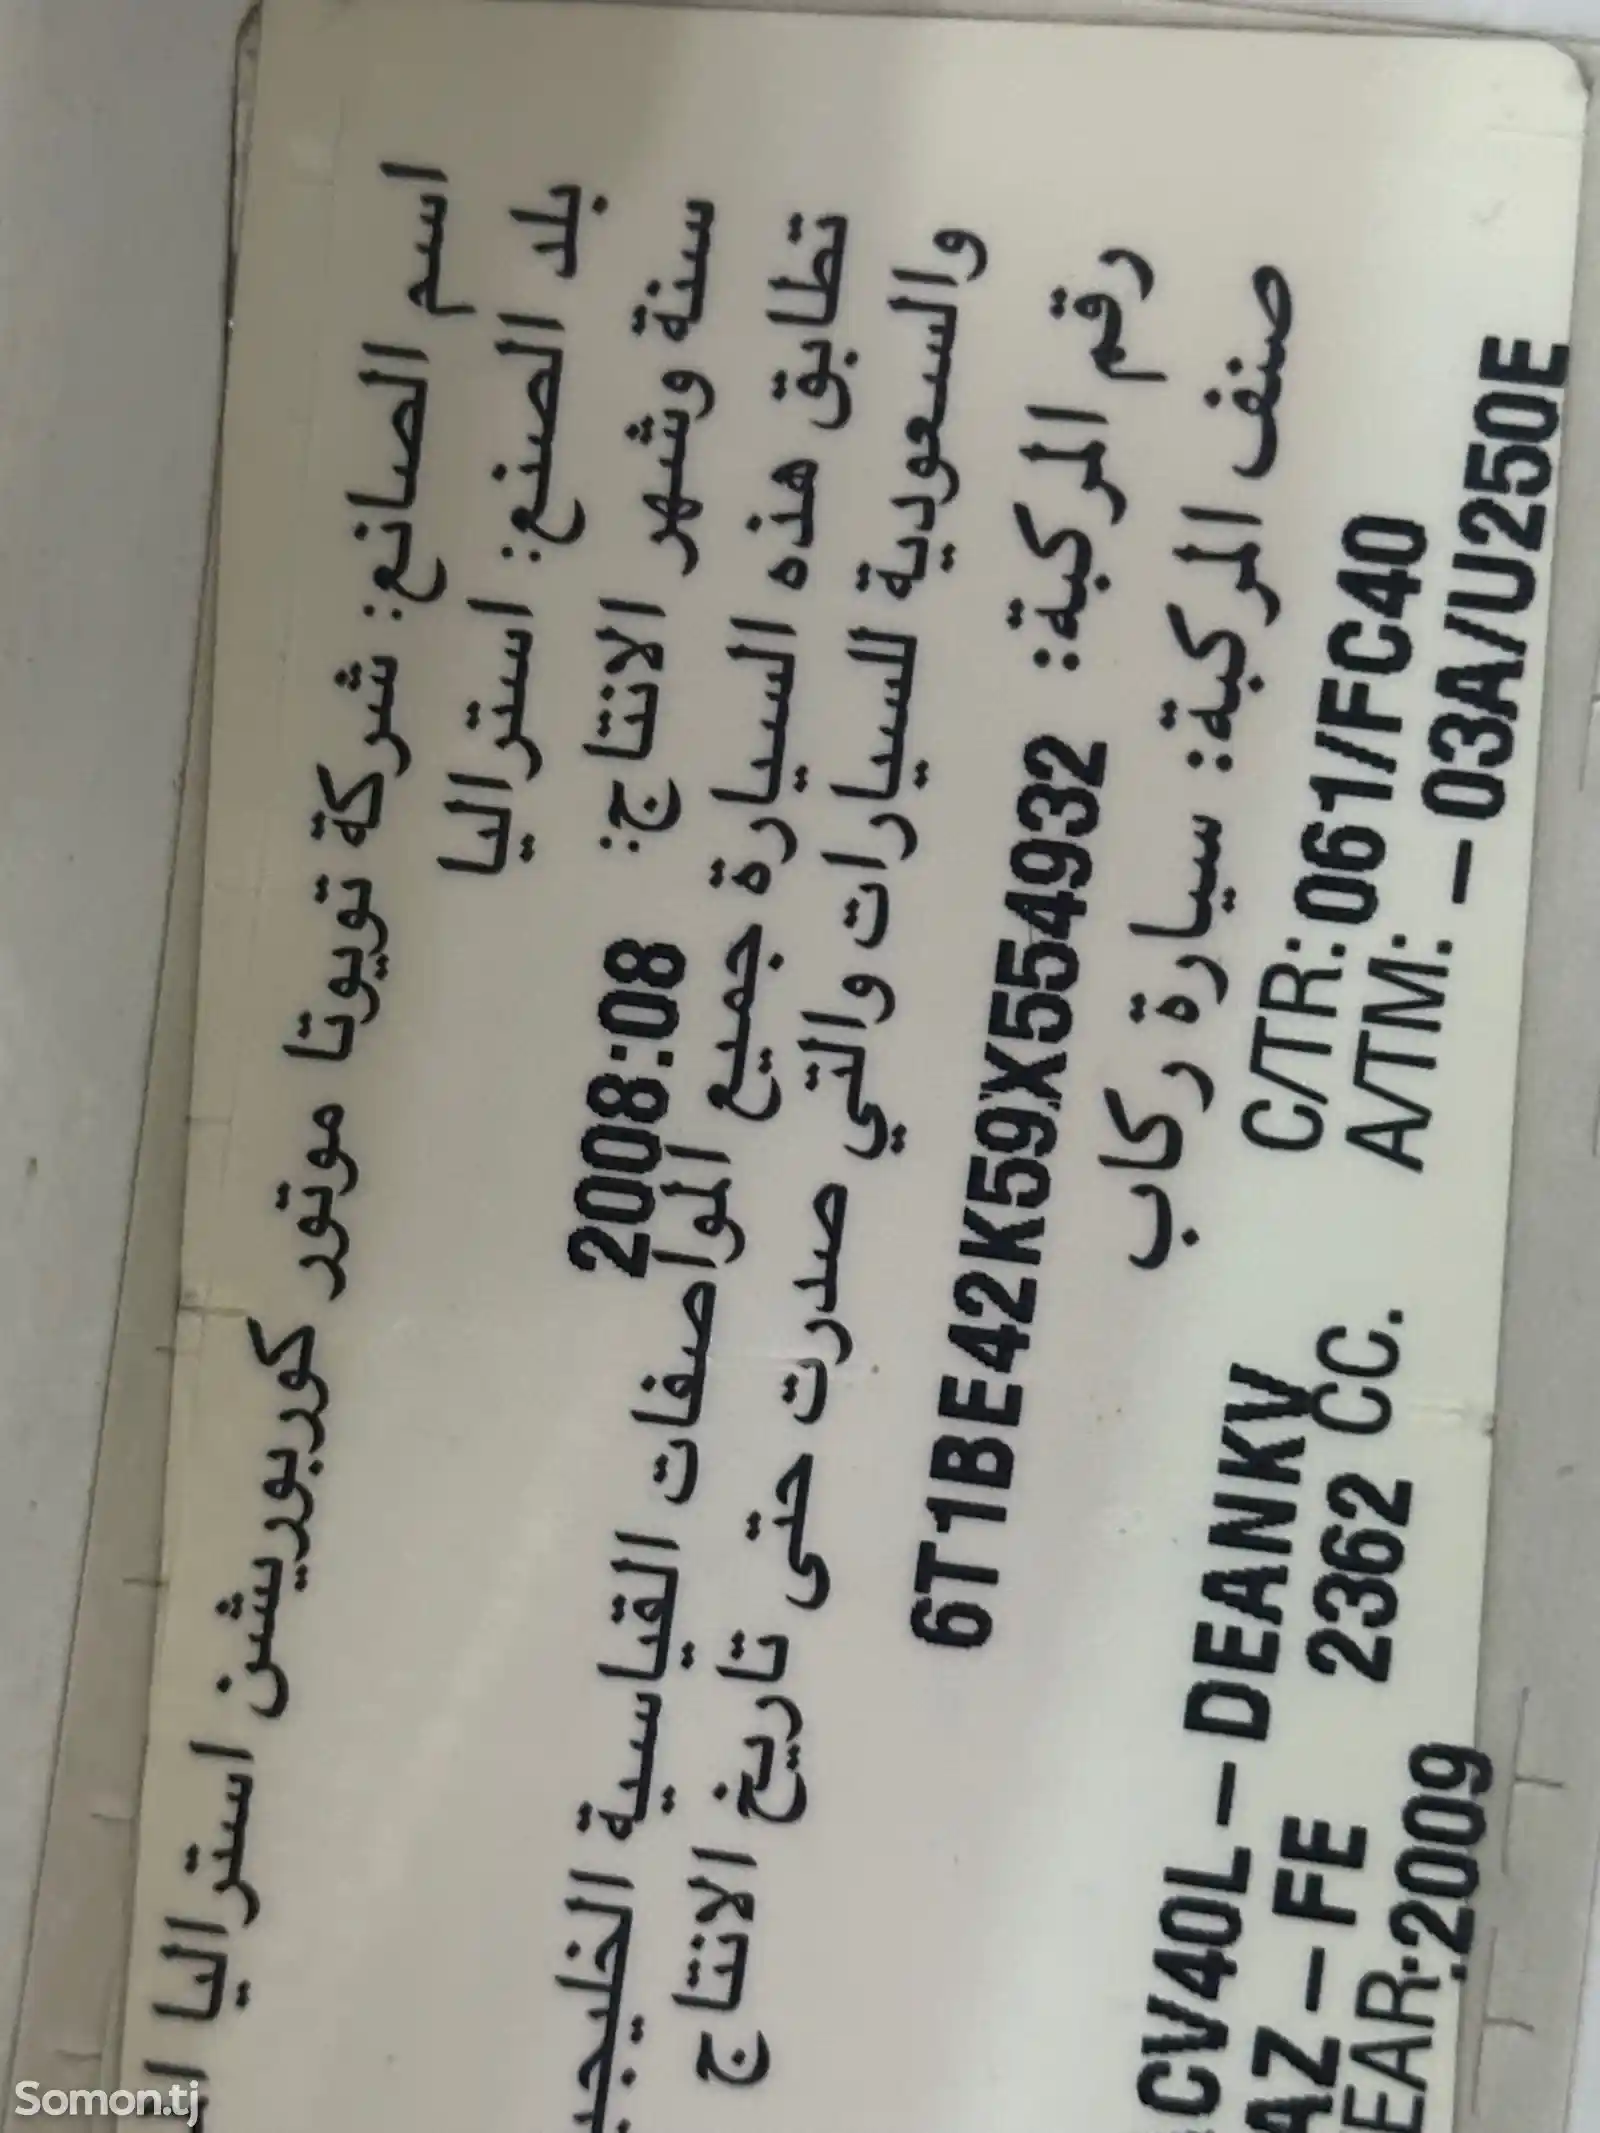 اسم الصانع: شركة تويوتا موتور كوربوريشن استراليا
بلد الصنع: استراليا
سنة وشهر الانتاج: 2008:08
تطابق هذه السيارة جميع المواصفات القياسية
والسعودية للسيارات والتي صدرت حتى تاريخ الانتاج
رقم المركبة: 6T1BE42K59X554932
صنف المركبة: سيارة ركاب
CV40L-DEANKV C/TR:061/FC40
AZ-FE 2362 CC. A/TM:-03A/U250E
EAR:2009
Somon.tj